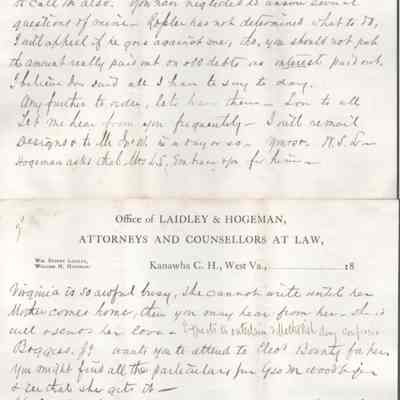 to call him also. You have neglected to answer several
questions of mine - has not determined what to do,
I will appeal if he goes against me, tho, you should not put
the amount really paid out on old debts as interest paid out.
I believe I've said all I have to say to day.
Any further to order, let's have them - Love to all
Let me hear from you frequently - I will remail
Designs to in a day or so - Yours W.S.L -
Hogeman asks that Mrs L.S. you for him -
Office of LAIDLEY & HOGEMAN,
ATTORNEYS AND COUNSELLORS AT LAW,
WM. SYDNEY LAIDLEY,
WILLIAM H. HOGEMAN.
Kanawha C. H., West Va., 18
Virginia is so awful busy, she cannot write until her
Mother comes home, then you may hear from her - she is
well & sends her love - Expects to entertain a Methodist conference
Boggess, Jr wants you to attend to Cleo's Bounty for her,
You might find all the particulars for Geo M Woodbridge
& see that she gets it -